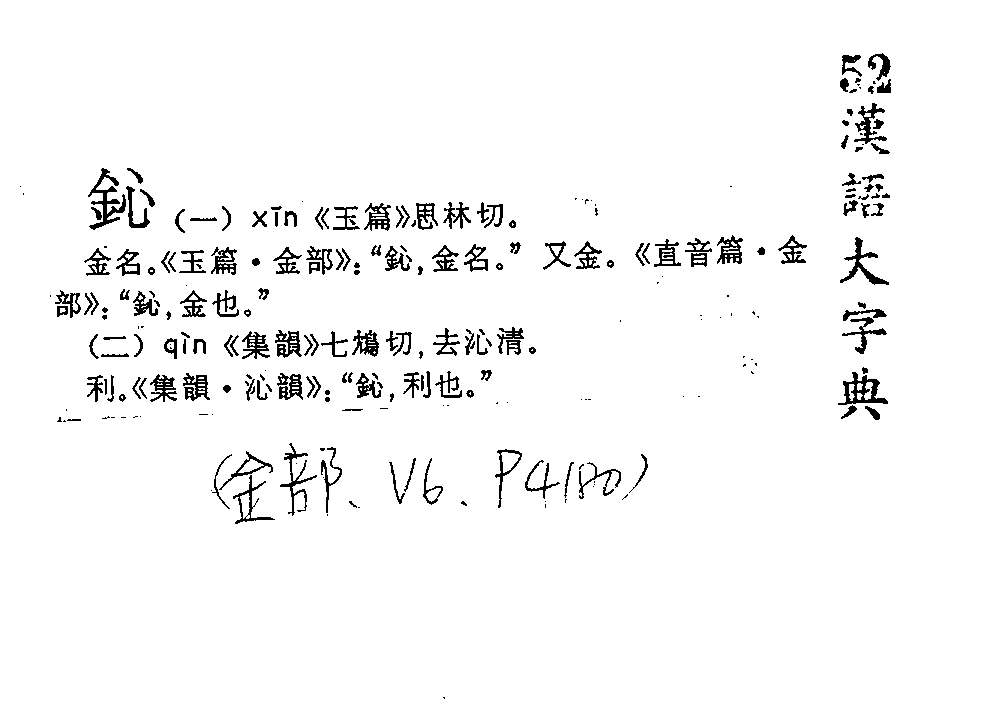 52漢語大字典
鈊 (一) xīn 《玉篇》思林切。
金名。《玉篇·金部》：“鈊，金名。” 又金。《直音篇·金
部》：“鈊，金也。”
(二) qìn 《集韻》七鴆切，去沁清。
利。《集韻·沁韻》：“鈊，利也。”
(金部、V6、P4180)